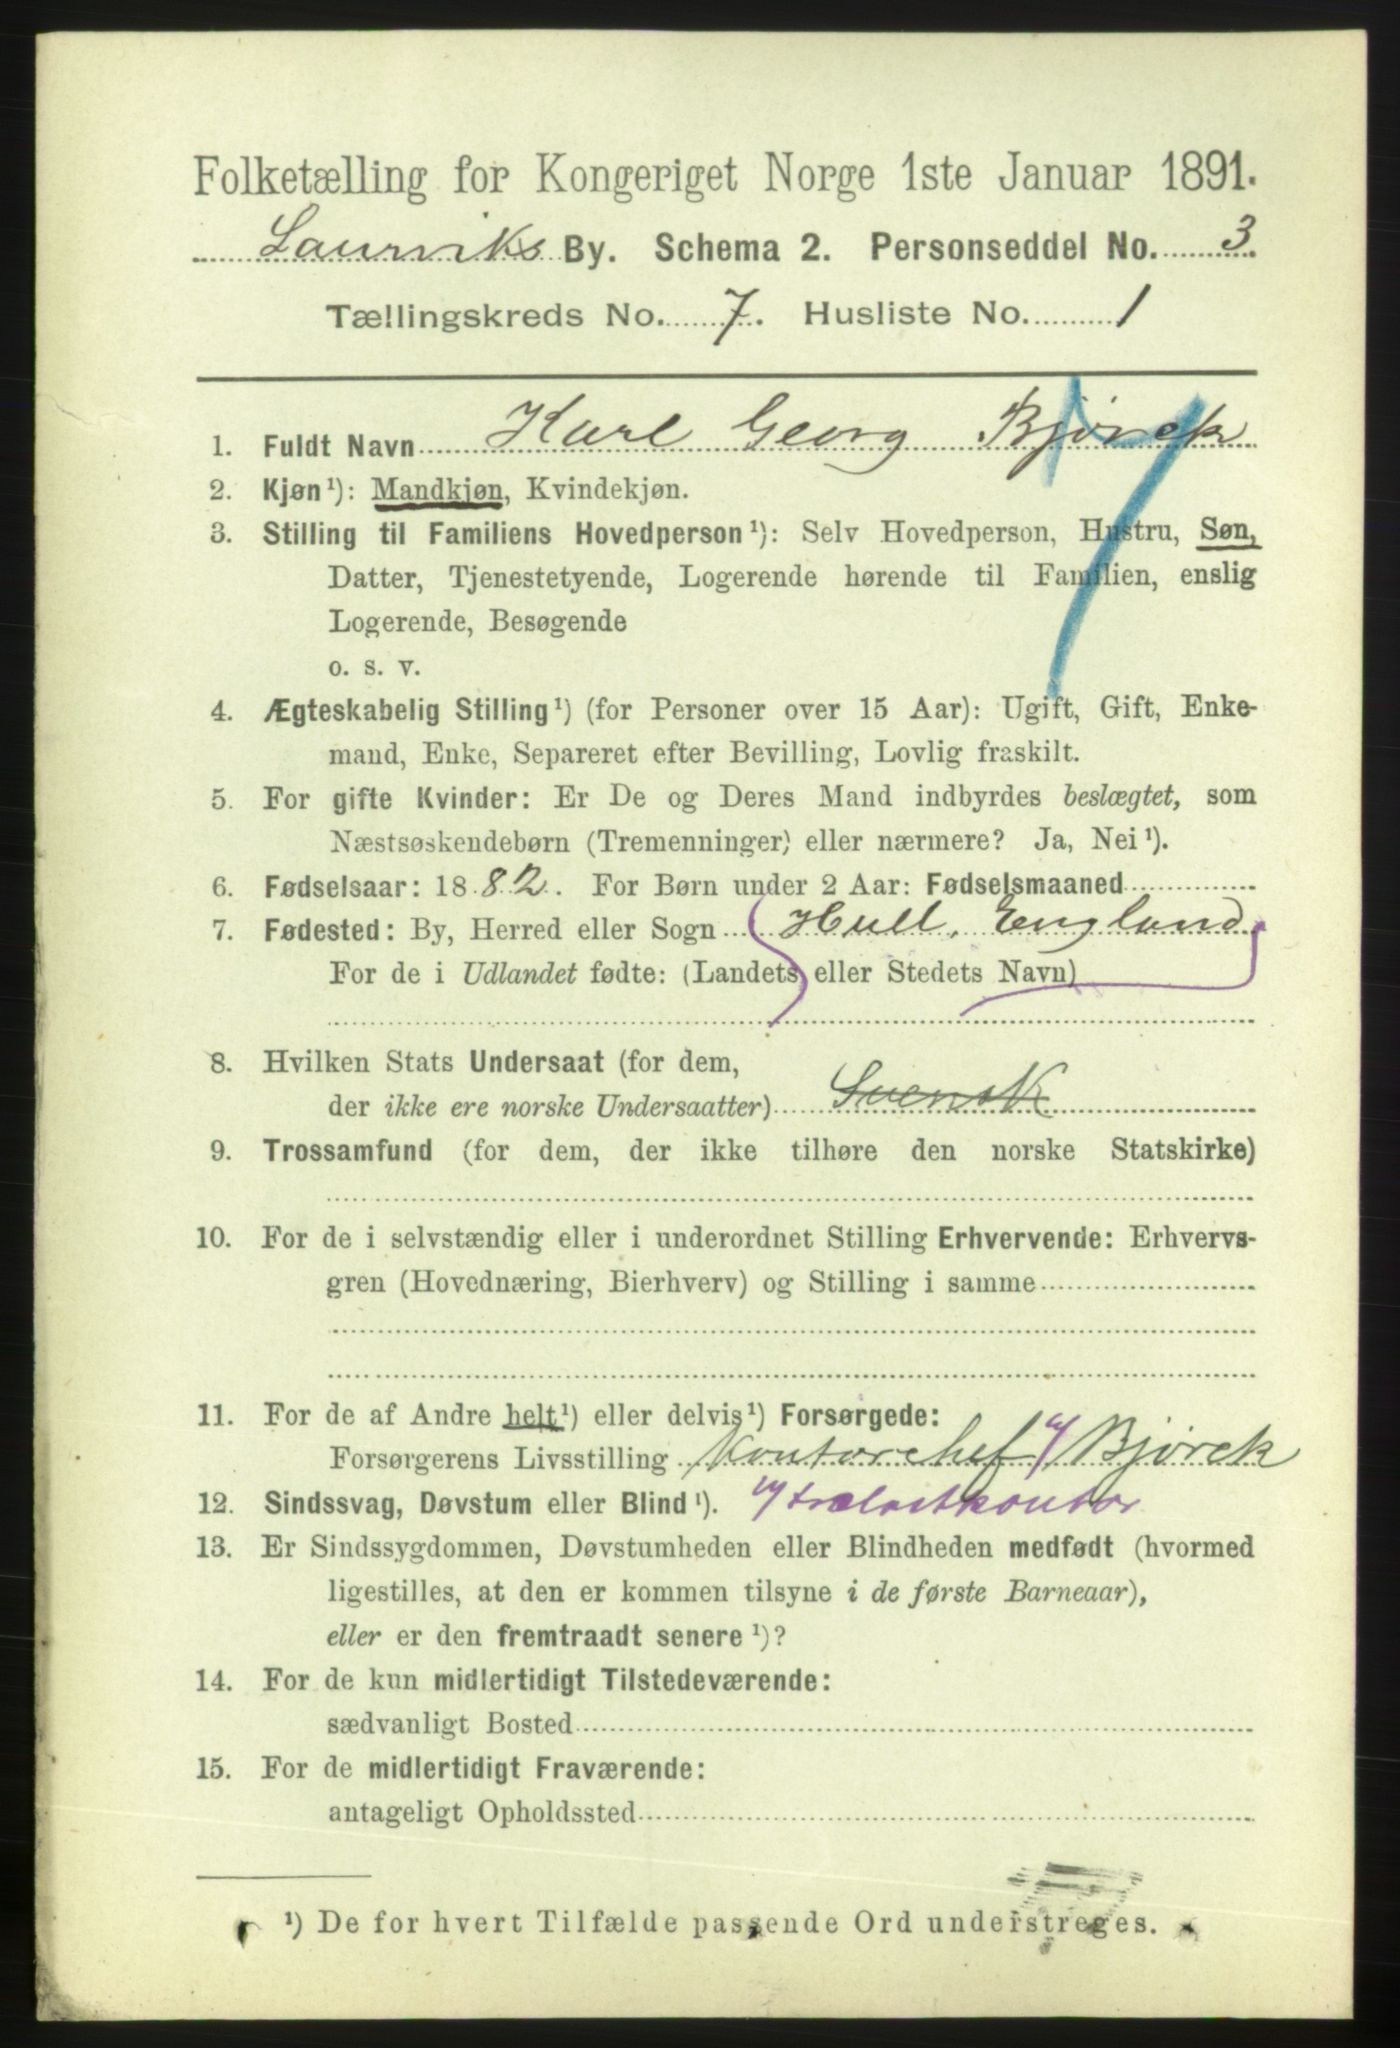 Folketælling for Kongeriget Norge 1ste Januar 1891.
Laurviks By. Schema 2. Personseddel No. 3.
Tællingskreds No. 7. Husliste No. 1
1. Fuldt Navn Karl Georg Bjørck
2. Kjøn¹): Mandkjøn, Kvindekjøn.
3. Stilling til Familiens Hovedperson¹): Selv Hovedperson, Hustru, Søn,
Datter, Tjenestetyende, Logerende hørende til Familien, enslig
Logerende, Besøgende
o. s. v.
4. Ægteskabelig Stilling¹) (for Personer over 15 Aar): Ugift, Gift, Enke-
mand, Enke, Separeret efter Bevilling, Lovlig fraskilt.
5. For gifte Kvinder: Er De og Deres Mand indbyrdes beslægtet, som
Næstsøskendebørn (Tremenninger) eller nærmere? Ja, Nei¹).
6. Fødselsaar: 1882. For Børn under 2 Aar: Fødselsmaaned
7. Fødested: By, Herred eller Sogn Hull, England
For de i Udlandet fødte: (Landets eller Stedets Navn)
8. Hvilken Stats Undersaat (for dem,
der ikke ere norske Undersaatter) Svensk
9. Trossamfund (for dem, der ikke tilhøre den norske Statskirke)
10. For de i selvstændig eller i underordnet Stilling Erhvervende: Erhvervs-
gren (Hovednæring, Bierhverv) og Stilling i samme
11. For de af Andre helt¹) eller delvis¹) Forsørgede:
Forsørgerens Livsstilling Kontorchef a/ Bjørck
12. Sindssvag, Døvstum eller Blind¹). a/ trælastkontor
13. Er Sindssygdommen, Døvstumheden eller Blindheden medfødt (hvormed
ligestilles, at den er kommen tilsyne i de første Barneaar),
eller er den fremtraadt senere¹)?
14. For de kun midlertidigt Tilstedeværende:
sædvanligt Bosted
15. For de midlertidigt Fraværende:
antageligt Opholdssted
¹) De for hvert Tilfælde passende Ord understreges.